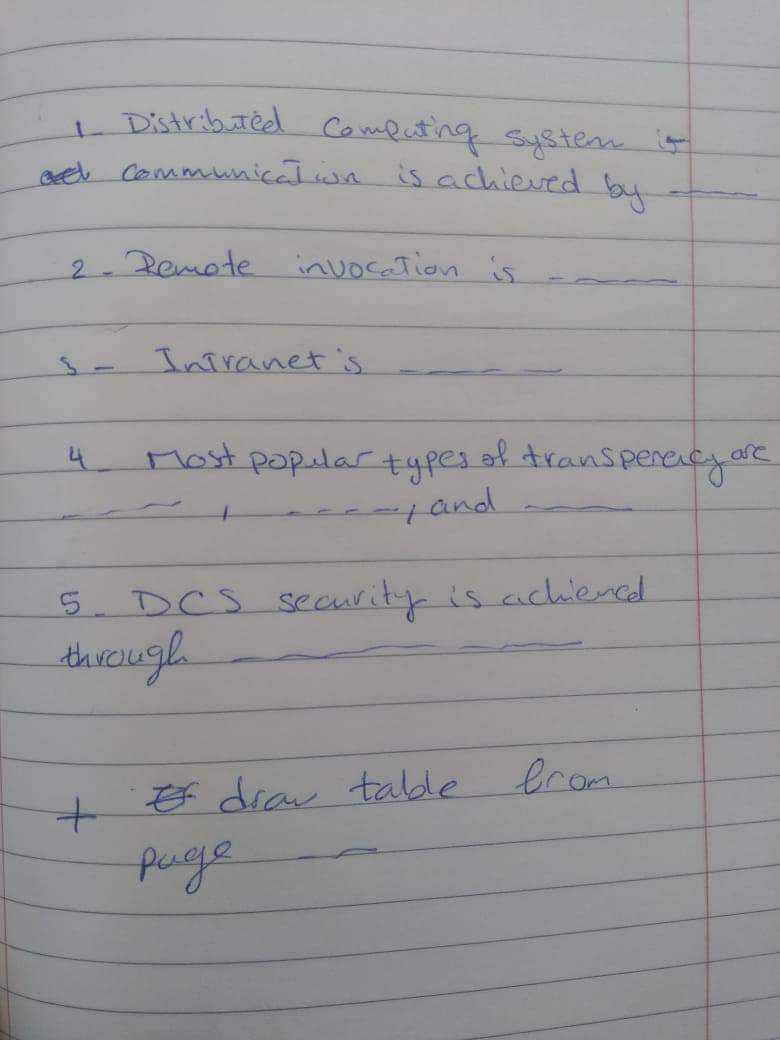 1- Distributed Computing system is
communication is achieved by ____
2- Remote invocation is - ____
3- Intranet is ____
4- Most popular types of transperency are
____, ____, and ____
5- DCS security is achieved
through ____
+ draw table from
page ____